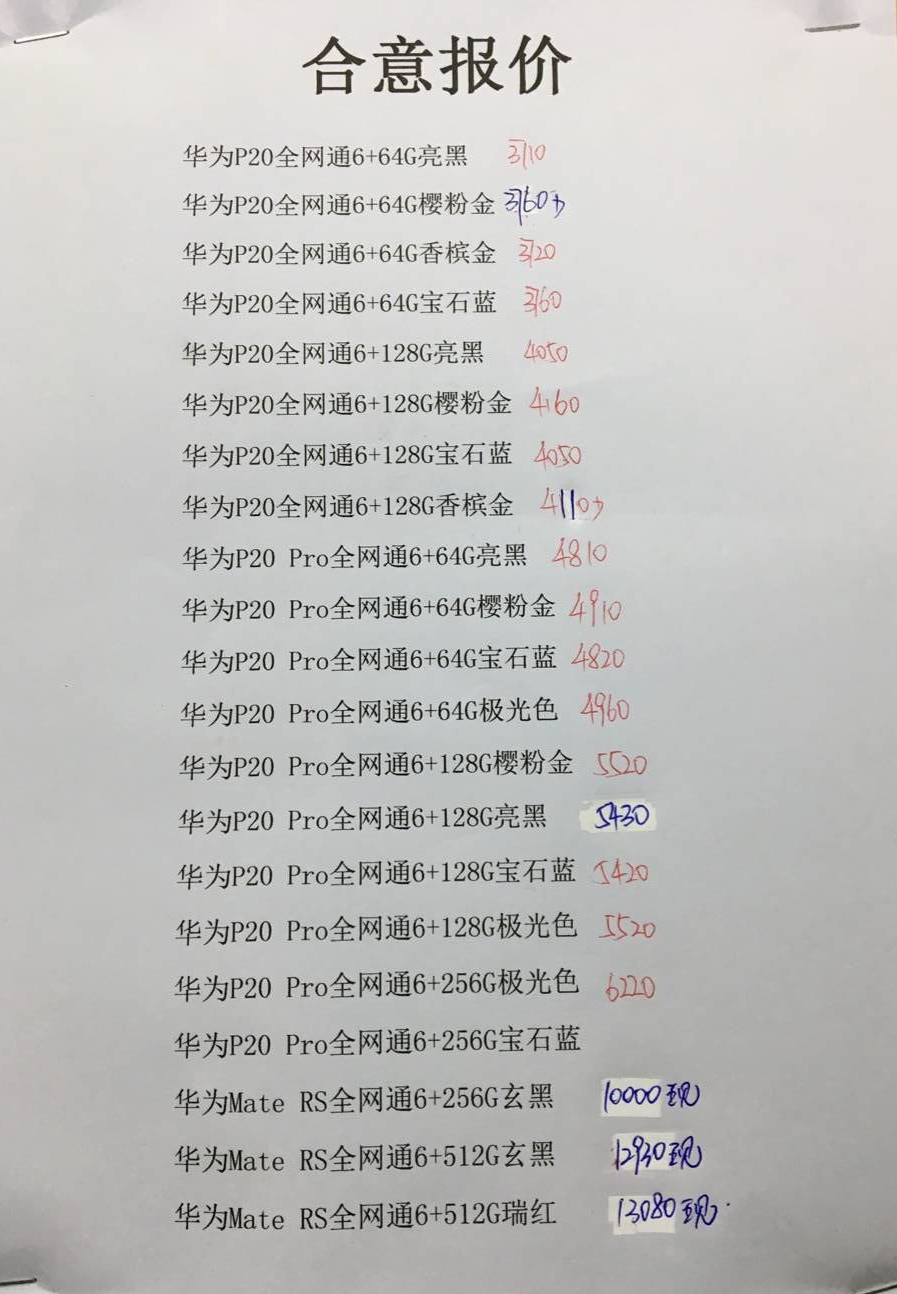 合意报价
华为P20全网通6+64G亮黑 3710
华为P20全网通6+64G樱粉金 3760少
华为P20全网通6+64G香槟金 3720
华为P20全网通6+64G宝石蓝 3760
华为P20全网通6+128G亮黑 4050
华为P20全网通6+128G樱粉金 4160
华为P20全网通6+128G宝石蓝 4050
华为P20全网通6+128G香槟金 4110少
华为P20 Pro全网通6+64G亮黑 4810
华为P20 Pro全网通6+64G樱粉金 4910
华为P20 Pro全网通6+64G宝石蓝 4820
华为P20 Pro全网通6+64G极光色 4960
华为P20 Pro全网通6+128G樱粉金 5520
华为P20 Pro全网通6+128G亮黑 5430
华为P20 Pro全网通6+128G宝石蓝 5420
华为P20 Pro全网通6+128G极光色 5520
华为P20 Pro全网通6+256G极光色 6220
华为P20 Pro全网通6+256G宝石蓝
华为Mate RS全网通6+256G玄黑 10000现
华为Mate RS全网通6+512G玄黑 12930现
华为Mate RS全网通6+512G瑞红 13080现